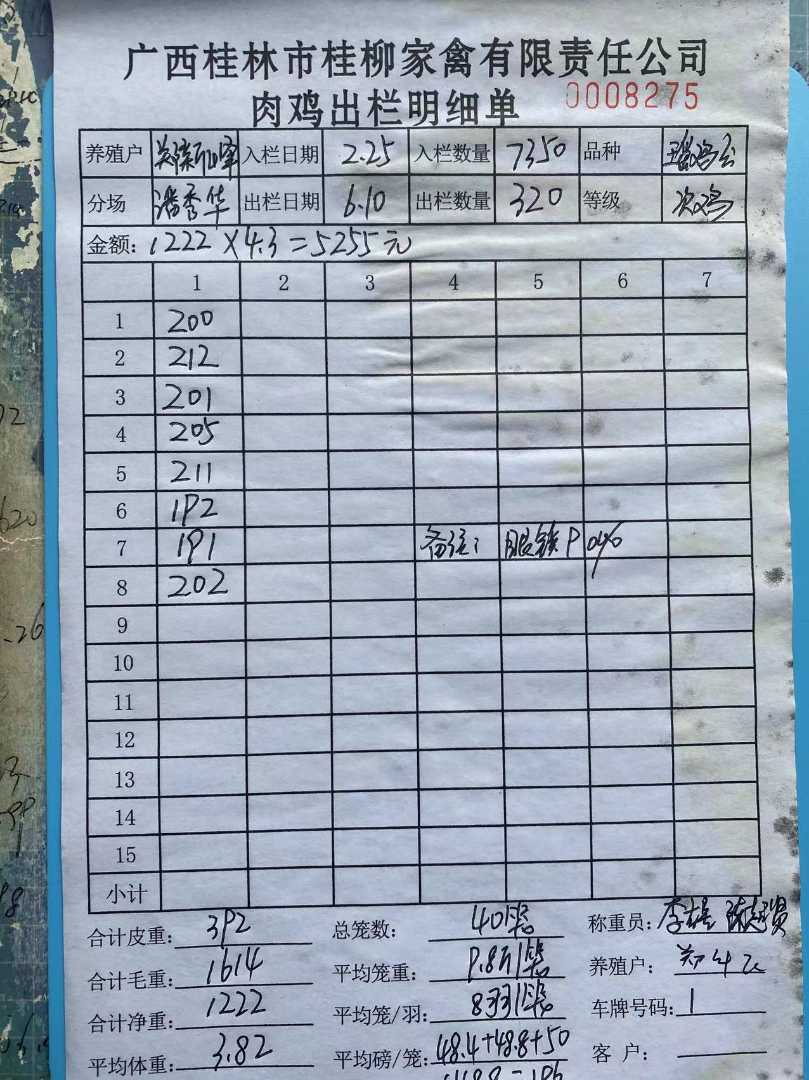 广西桂林市桂柳家禽有限责任公司
肉鸡出栏明细单 0008275
养殖户 入栏日期 2.25 入栏数量 7350 品种
分场 潘秀华 出栏日期 6.10 出栏数量 320 等级 次鸡
金额: 1222×4.3=5255元
1 2 3 4 5 6 7
1 200
2 212
3 201
4 205
5 211
6 192
7 191 备注:
8 202
9
10
11
12
13
14
15
小计
合计皮重: 392 总笼数: 40笼 称重员: 李
合计毛重: 1614 平均笼重: 9.8斤/笼 养殖户:
合计净重: 1222 平均笼/羽: 8羽/笼 车牌号码: 1
平均体重: 3.82 平均磅/笼: 48.4+48.8+50
客 户: